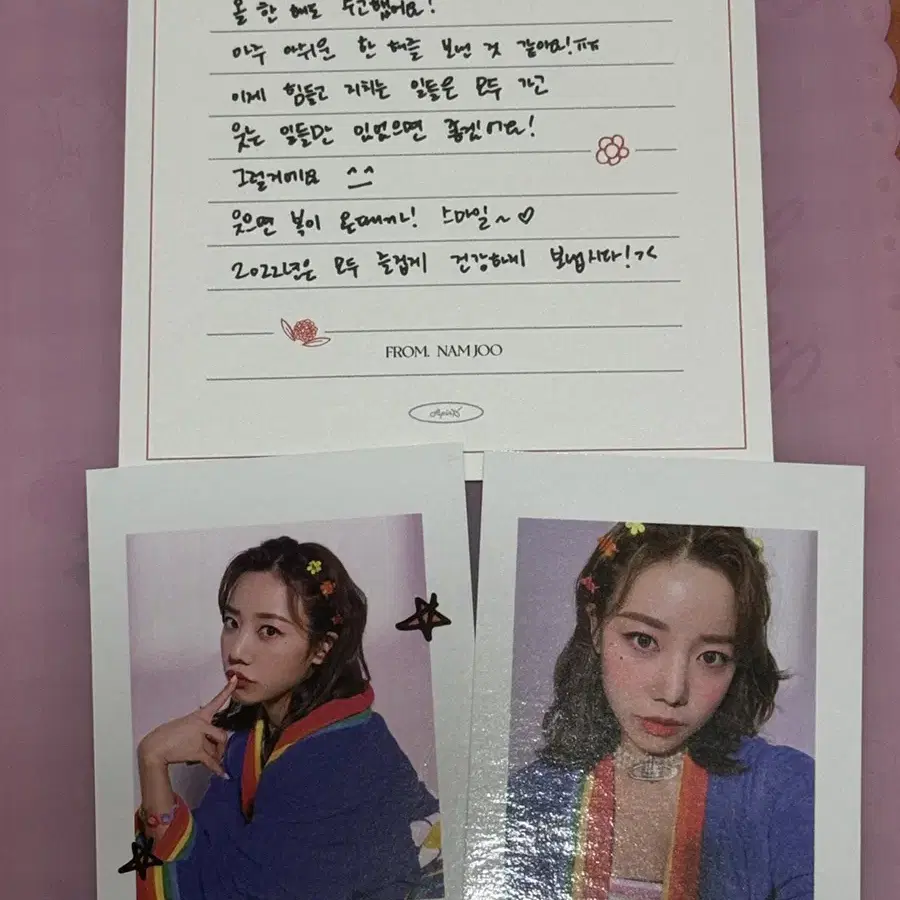 올 한 해도 수고했어요!
아주 아쉬운 한 해를 보낸 것 같아요!ㅠㅠ
이제 힘들고 지치는 일들은 모두 가고
웃는 일들만 있었으면 좋겠어요!
그럴거에요 ^^
웃으면 복이 온대니까! 스마일~♡
2022년은 모두 즐겁게 건강하게 보냅시다!ㅋ
FROM. NAM JOO
Apink